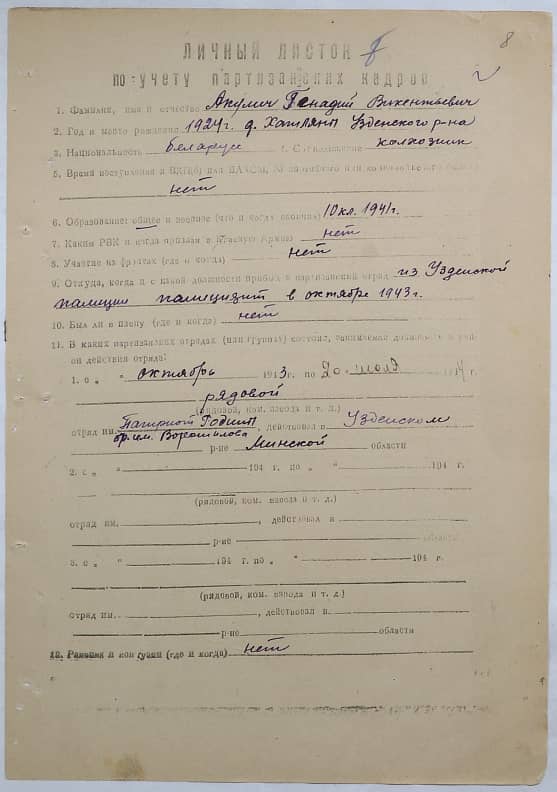 8
ЛИЧНЫЙ ЛИСТОК
по учету партизанских кадров
1. Фамилия, имя и отчество Акулич Генадий Викентьевич
2. Год и место рождения 1924 г. д. Хатляны Узденского р-на
3. Национальность беларус 4. Соц. колхозник
5. Время вступления в
нет
6. Образование: общее и военное (что и когда окончил) 10 кл. 1941 г.
7. Каким РВК и когда призван в Красную Армию нет
8. Участие на фронтах (где и когда) нет
9. Откуда, когда и с какой должности прибыл в партизанский отряд из Узденской
палиции палицыянт в октябре 1943 г.
10. Был ли в плену (где и когда) нет
11. В каких партизанских отрядах (или группах) состоял, занимаемая должность и рай-
он действия отряда:
1. с „ “ октябрь 1943 г. по 20 июля 194 г.
рядовой
(рядовой, ком. взвода и т. д.)
отряд им. Родины, действовал в Узденском
бр. им. Ворошилова р-не Минской области
2. с „ “ 194 г. по „ “ 194 г.
(рядовой, ком. взвода и т. д.)
отряд им. , действовал в
р-не области
3. с „ “ 194 г. по „ “ 194 г.
(рядовой, ком. взвода и т. д.)
отряд им. , действовал в
р-не области
12. Ранения и контузии (где и когда) нет